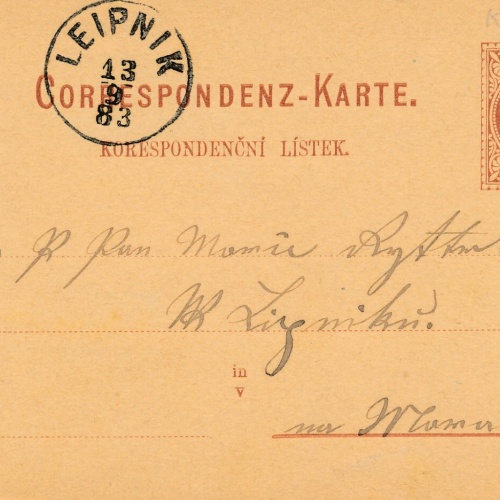 LEIPNIK
13
9
83
CORRESPONDENZ-KARTE.
KORESPONDENČNÍ LÍSTEK.
P Pan Moric
W Lipniku.
in
v
na Mora